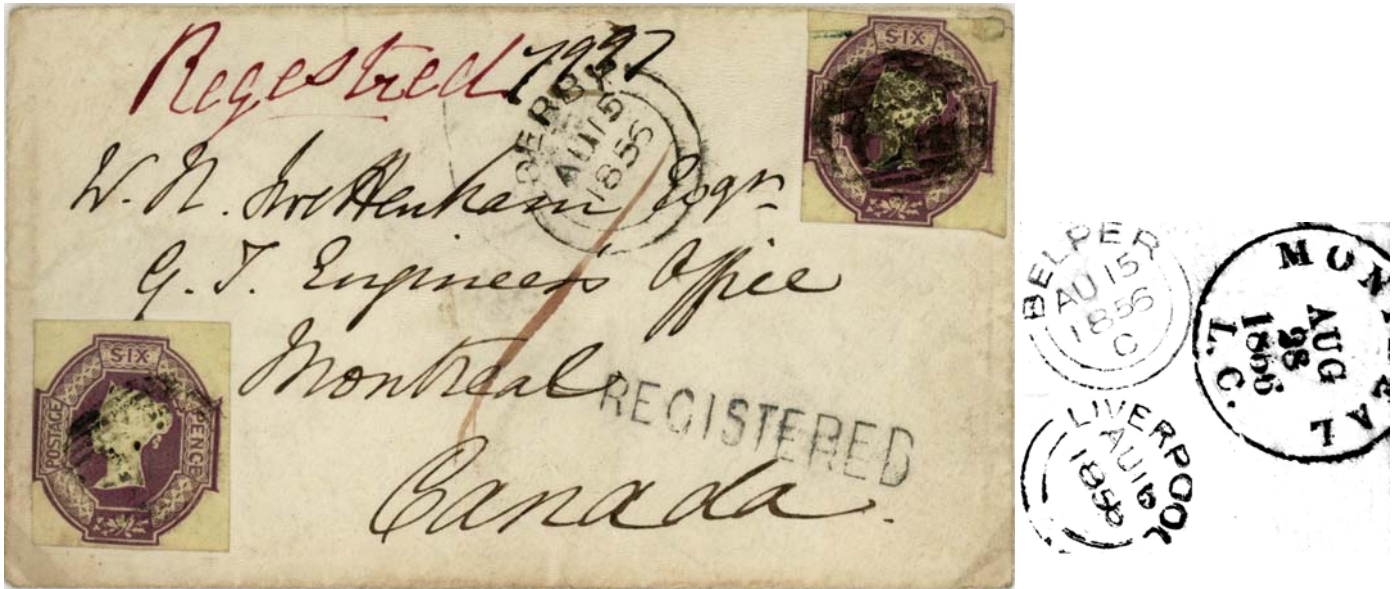 Regestred 7937
DERBY
AU 15
1856
W. N. Swettenham Esqr
G. T. Engineers Office
Montreal
Canada.
REGISTERED
SIX
SIX
POSTAGE
PENCE
BELPER
AU 15
1856
C
MONTREAL
AUG
28
1856
L. C.
LIVERPOOL
AU 16
1856